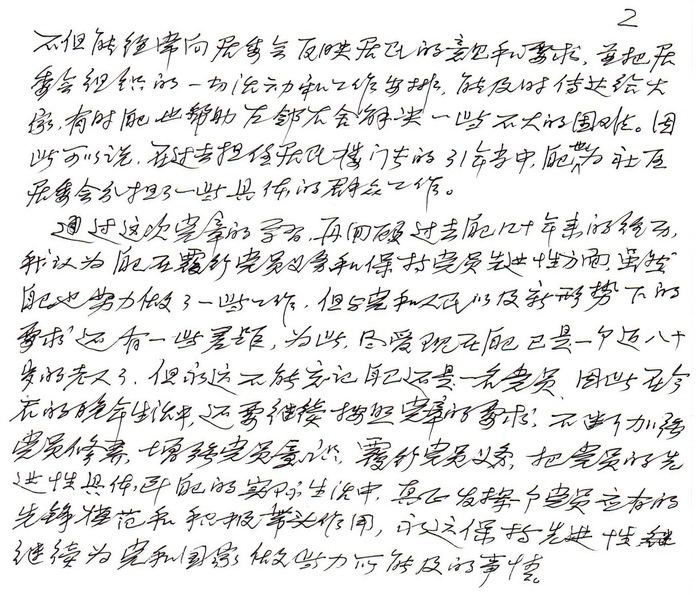 2
不但能经常向居委会反映居民的意见和要求，并把居
委会组织的一切活动和工作安排，能及时传达给大
家，有时自己也帮助左邻右舍解决一些不大的困难。因
此可以说，在过去担任居民楼门长的21年当中，自己也为社区
居委会分担了一些具体的群众工作。
通过这次党章的学习，再回顾过去自己几十年来的经历，
我认为自己在履行党员义务和保持党员先进性方面，虽然
自己也努力做了一些工作，但与党和人民以及新形势下的
要求还有一些差距，为此，尽管现在自己已是一个近八十
岁的老人了，但永远不能忘记自己还是一名党员，因此在今
后的晚年生活中，还要继续按照党章的要求，不断加强
党员修养，增强党员意识，履行党员义务，把党员的先
进性具体到自己的实际生活中，真正发挥个党员应有的
先锋模范和积极带头作用，永远保持先进性
继续为党和国家做些力所能及的事情。